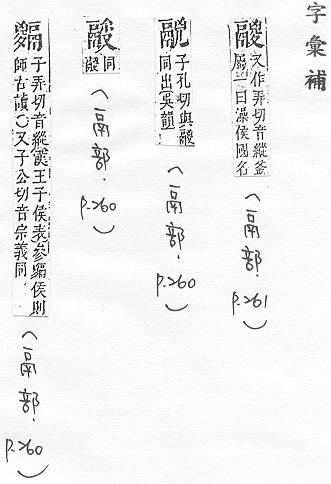 字彙補
鬷
又作弄切音縱釜
屬一曰澡侯國名
(鬲部.p.261)
子孔切與鬷
同出韻
(鬲部.p.260)
同
鬷
(鬲部.p.260)
子弄切音縱漢王子侯表參侯則
師古讀○又子公切音宗義同
(鬲部.p.260)